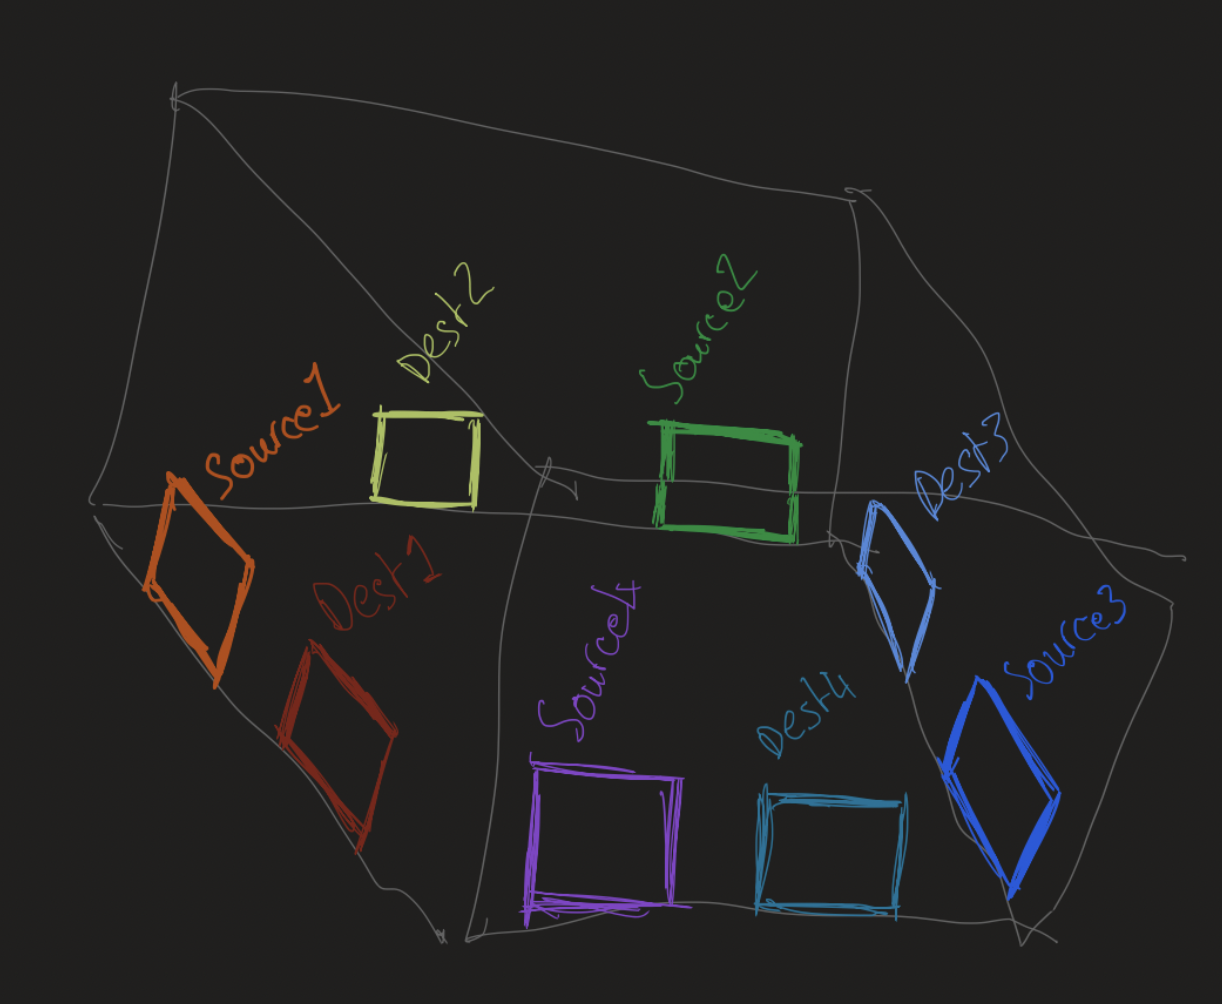 Dest2
Source2
Source1
Dest3
Dest1
Source4
Source3
Dest4